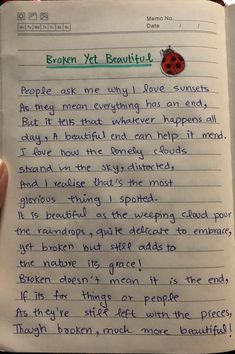 Memo No.
Date / /
Broken Yet Beautiful
People ask me why I love sunsets
As they mean everything has an end,
But it tells that whatever happens all
day, A beautiful end can help it mend.
I love how the lonely clouds
strand in the sky, distorted,
And I realise that's the most
glorious thing I spotted.
It is beautiful as the weeping cloud pour
the raindrops, quite delicate to embrace,
yet broken but still adds to
the nature its grace!
Broken doesn't mean it is the end,
If its for things or people
As they're still left with the pieces,
Though broken, much more beautiful!